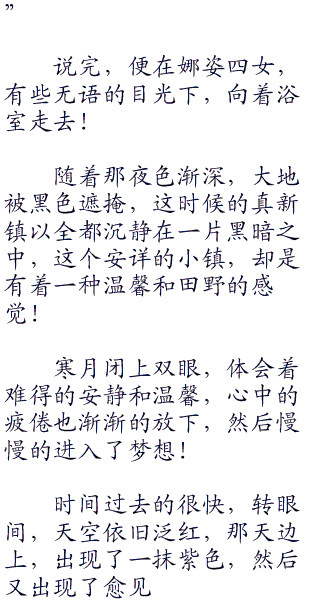 ”
说完，便在娜姿四女，
有些无语的目光下，向着浴
室走去！
随着那夜色渐深，大地
被黑色遮掩，这时候的真新
镇以全都沉静在一片黑暗之
中，这个安详的小镇，却是
有着一种温馨和田野的感
觉！
寒月闭上双眼，体会着
难得的安静和温馨，心中的
疲倦也渐渐的放下，然后慢
慢的进入了梦想！
时间过去的很快，转眼
间，天空依旧泛红，那天边
上，出现了一抹紫色，然后
又出现了愈见